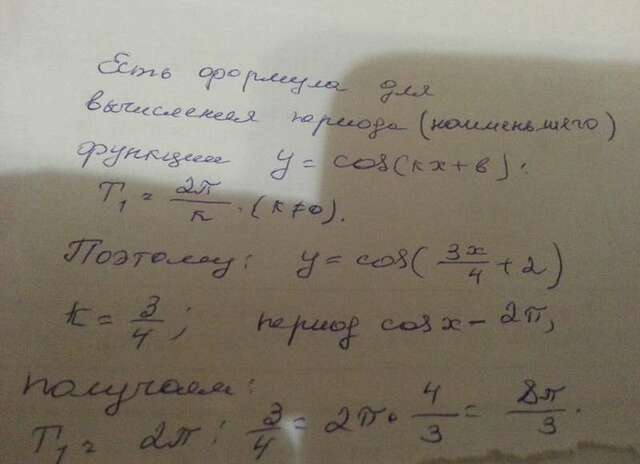 Есть формула для
вычисления периода (наименьшего)
функции y = cos(kx+b):
T₁ = 2π/k. (k≠0).
Поэтому: y = cos(3x/4 + 2)
k = 3/4; период cosx - 2π,
получаем:
T₁ = 2π : 3/4 = 2π · 4/3 = 8π/3.